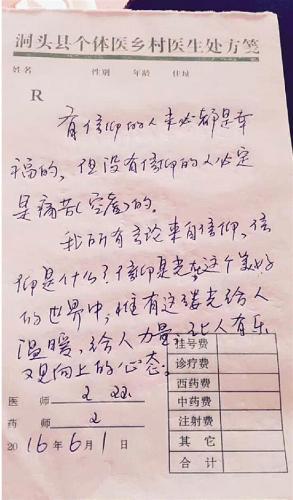 洞头县个体医乡村医生处方笺
姓名 性别 年龄 住址
R
有信仰的人未必都是幸
福的，但没有信仰的人必定
是痛苦(空虚)的。
我所有言论来自信仰，信
仰是什么？信仰是光在这个美好
的世界中，惟有这缕光给人
温暖，给人力量，让人有乐
观向上的心态。
挂号费
诊疗费
医 师
西药费
中药费
药 师
注射费
2016年6月1日
其 它
合 计